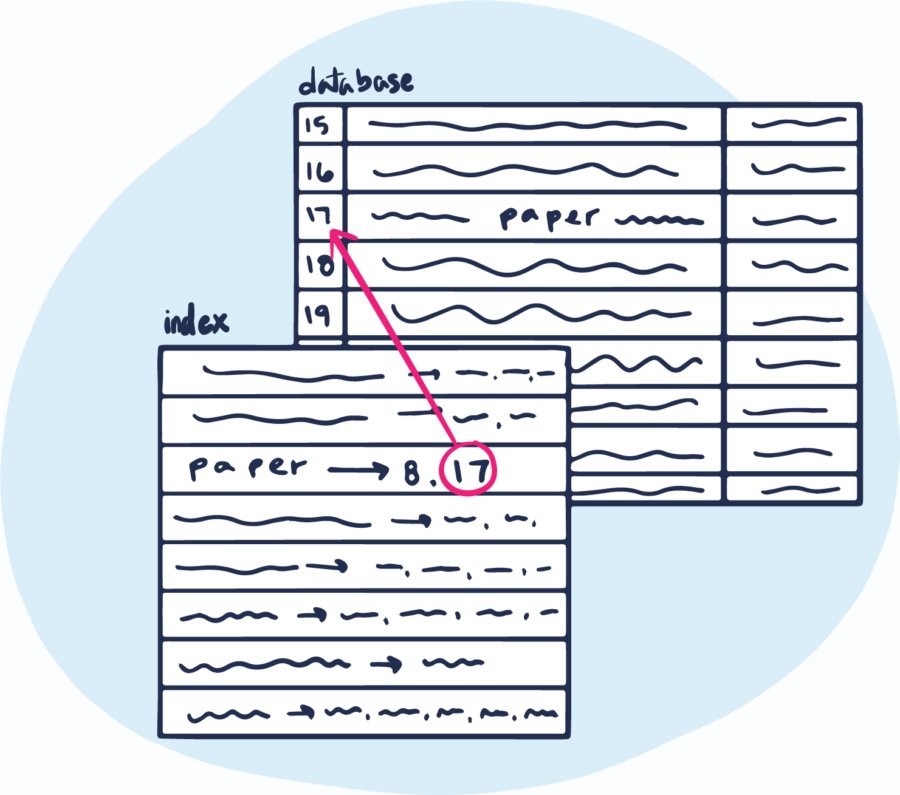 database
15
16
17 paper
18
19
index
paper → 8.17